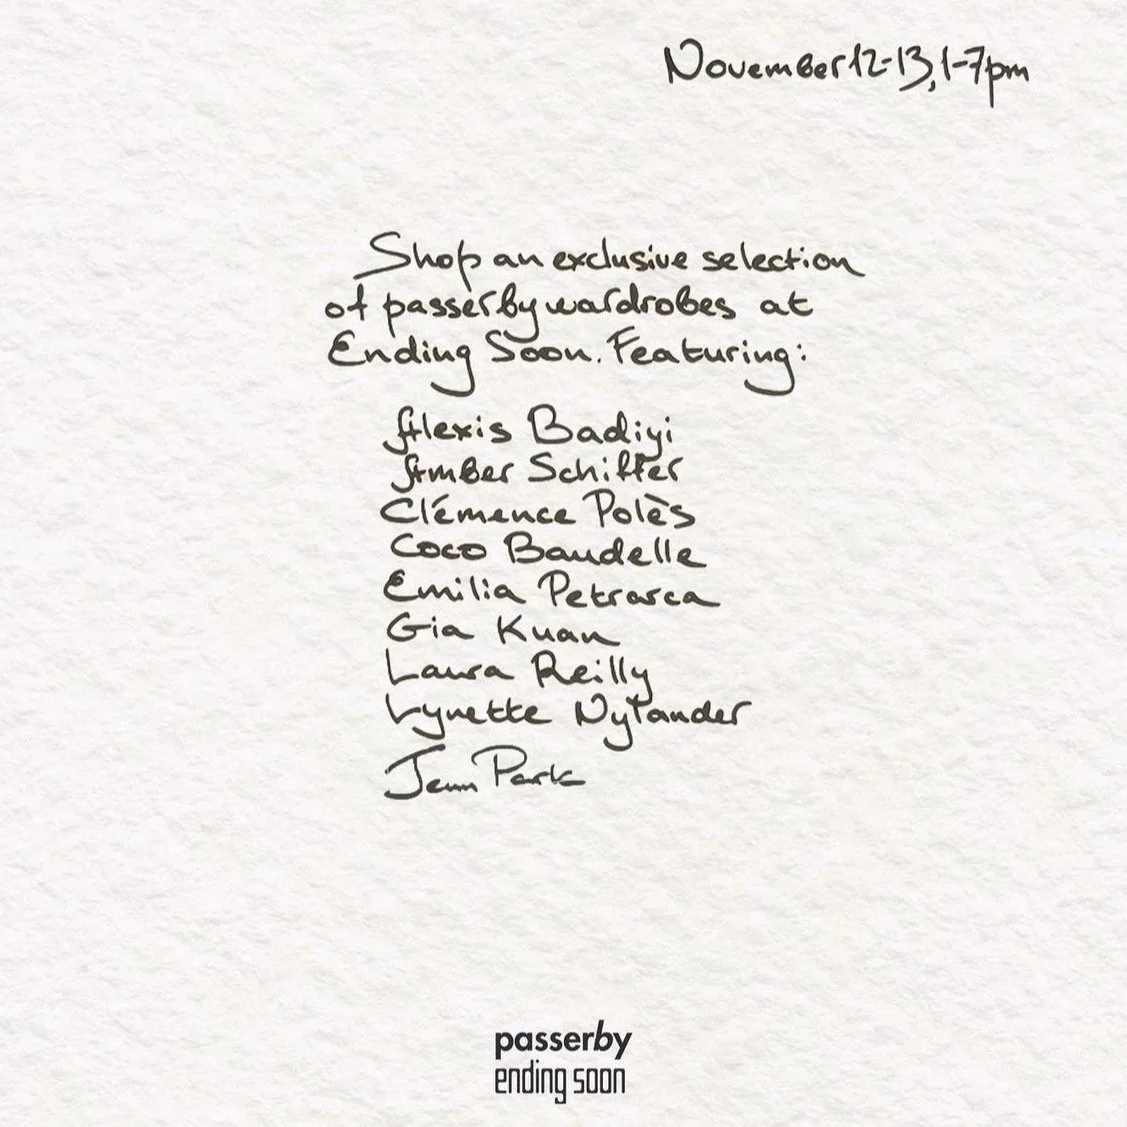 November 12-13, 1-7pm
Shop an exclusive selection
of passerby wardrobes at
Ending Soon. Featuring:
Alexis Badiyi
Amber Schiffer
Clémence Polès
Coco Baudelle
Emilia Petrarca
Gia Kuan
Laura Reilly
Lynette Nylander
Jenn Park
passerby
ending soon